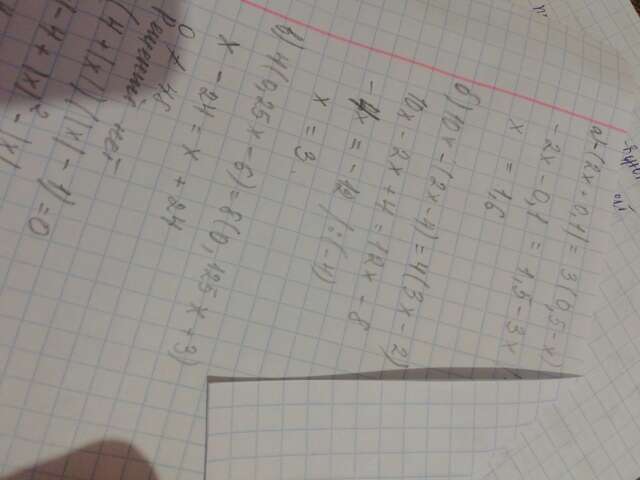 а) -(2x+0,1) = 3(0,5-x)
-2x-0,1 = 1,5-3x
x = 1,6
б) 10x-(2x-4)=4(3x-2)
10x-2x+4=12x-8
-4x = -12 /:(-4)
x = 3
в) 4(0,25x-6)=8(0,125x+3)
x-24=x+24
0 ≠ 48
Решений нет
(4+|x|)(|x|-1)=0
-4+|x|²-|x|